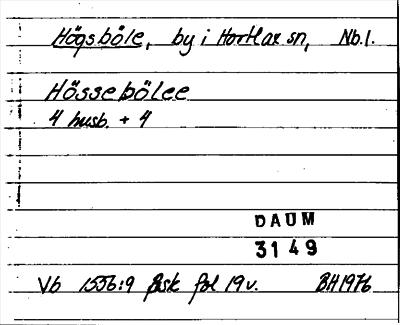 Högsböle, by i Hortlax sn, Nb.l.
Hössebölee
4 husb. + 4
DAUM
3149
Vb 1556:9 fisk fol 19v. BH1976